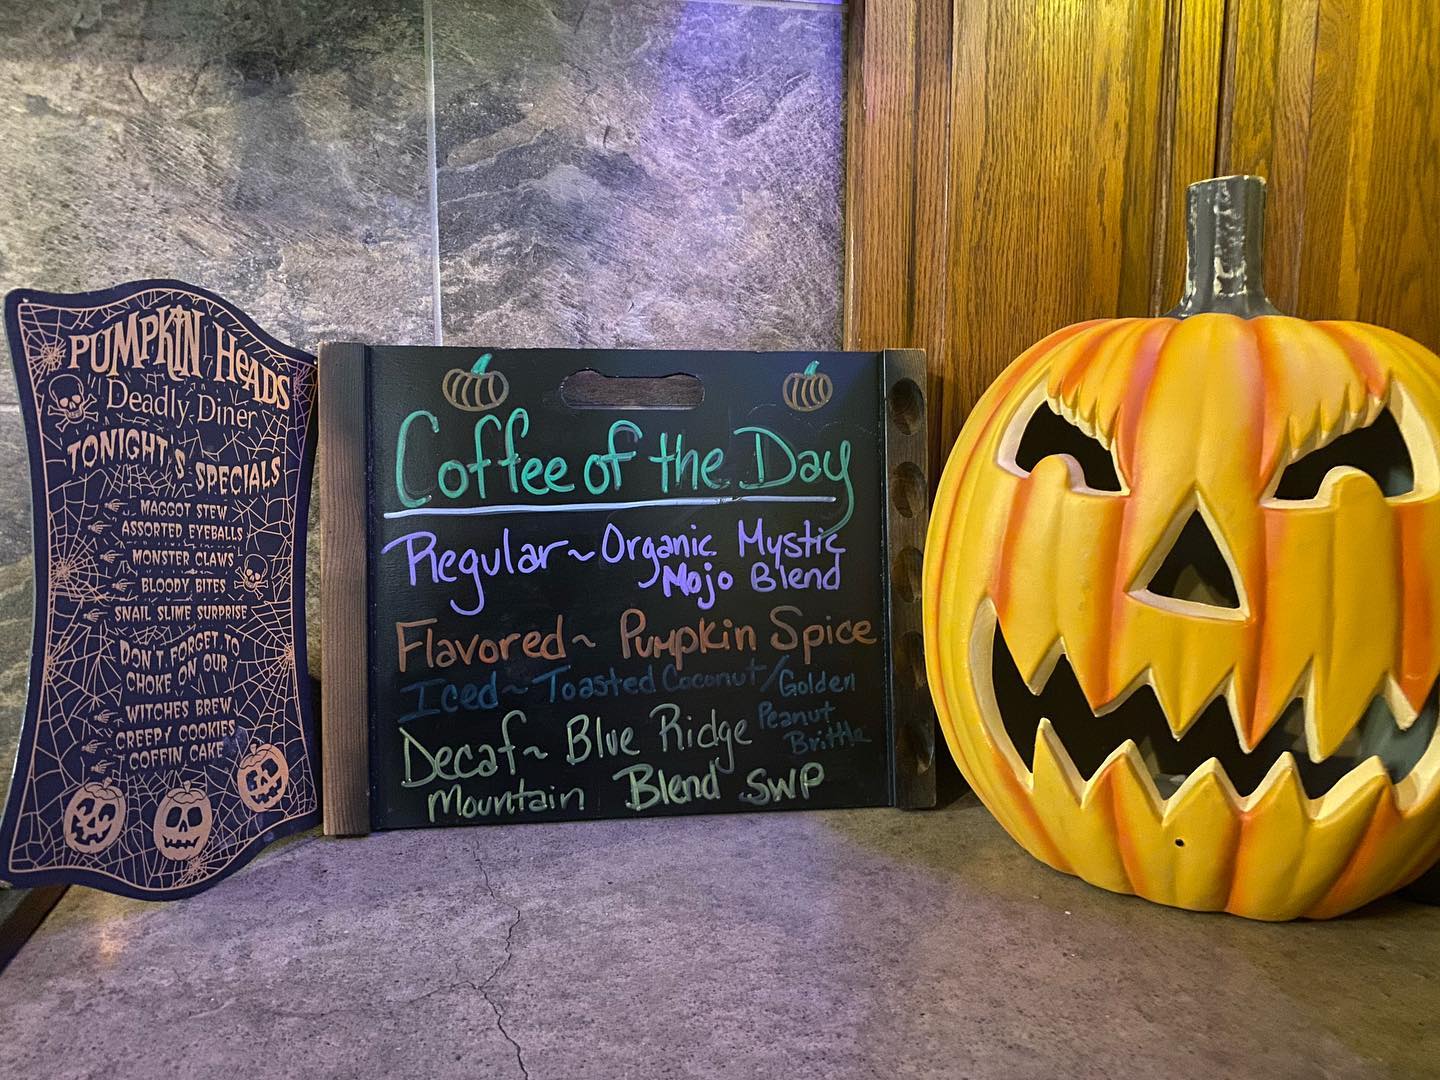 PUMPKIN HEADS
Deadly Diner
TONIGHT'S SPECIALS
MAGGOT STEW
ASSORTED EYEBALLS
MONSTER CLAWS
BLOODY BITES
SNAIL SLIME SURPRISE
DON'T FORGET TO
CHOKE ON OUR
WITCHES BREW
CREEPY COOKIES
COFFIN CAKE
Coffee of the Day
Regular~Organic Mystic
Mojo Blend
Flavored~ Pumpkin Spice
Iced~ Toasted Coconut/Golden
Peanut
Brittle
Decaf~ Blue Ridge
Mountain Blend SWP